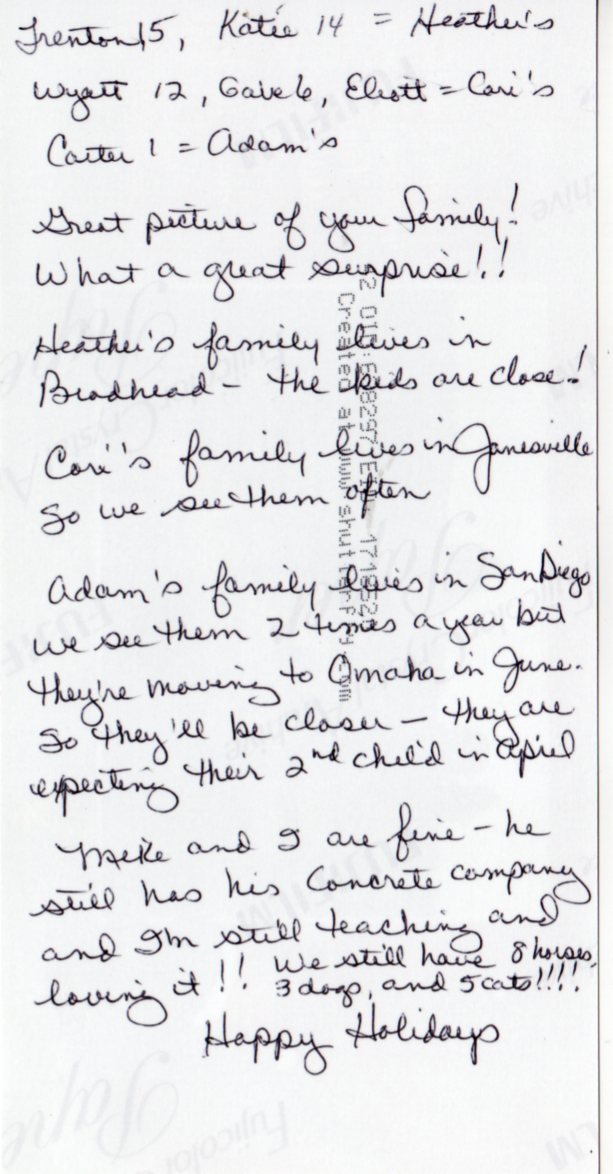 Trenton 15, Katie 14 = Heather's
Wyatt 12, Gave 6, Eliott = Cori's
Carter 1 = Adam's
Great picture of your family!
What a great surprise!!
Heather's family lives in
Brodhead - the kids are close!
Cori's family lives in Janesville
so we see them often
Adam's family lives in San Diego
we see them 2 times a year but
they're moving to Omaha in June.
So they'll be closer - they are
expecting their 2nd child in April
Mike and I are fine - he
still has his concrete company
and I'm still teaching and
loving it!! We still have 8 horses,
3 dogs, and 5 cats!!!!
Happy Holidays
Created at www.shutterfly.com
FUJIFILM
Fujicolor Crystal Archive
Paper